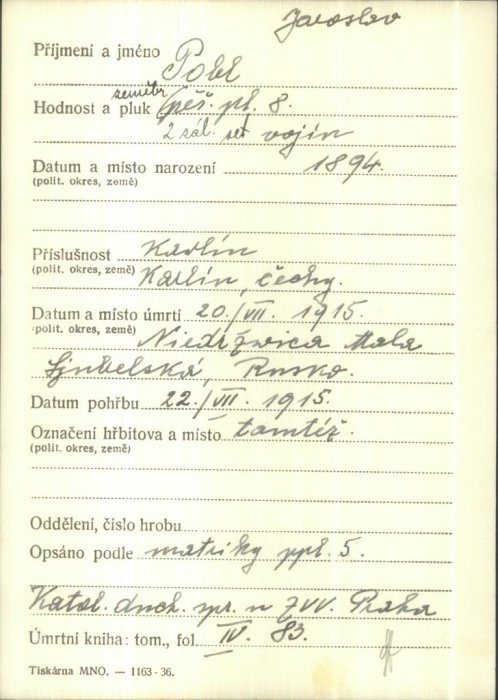 Jaroslav
Příjmení a jméno Pobl
zeměbr.
Hodnost a pluk pěš. pl. 8.
2 zál. set. vojín
Datum a místo narození 1894.
(polit. okres, země)
Příslušnost Karlín
(polit. okres, země) Karlín, čechy.
Datum a místo úmrtí 20./VII. 1915.
(polit. okres, země) Niedržwica Mala
Ljubelská, Rusko.
Datum pohřbu 22./VII. 1915.
Označení hřbitova a místo tamtéž.
(polit. okres, země)
Oddělení, číslo hrobu
Opsáno podle matriky ppl. 5.
Katol. duch. spr. u ZVV. Praha
Úmrtní kniha: tom., fol. IV. 83.
Tiskárna MNO. — 1163-36.